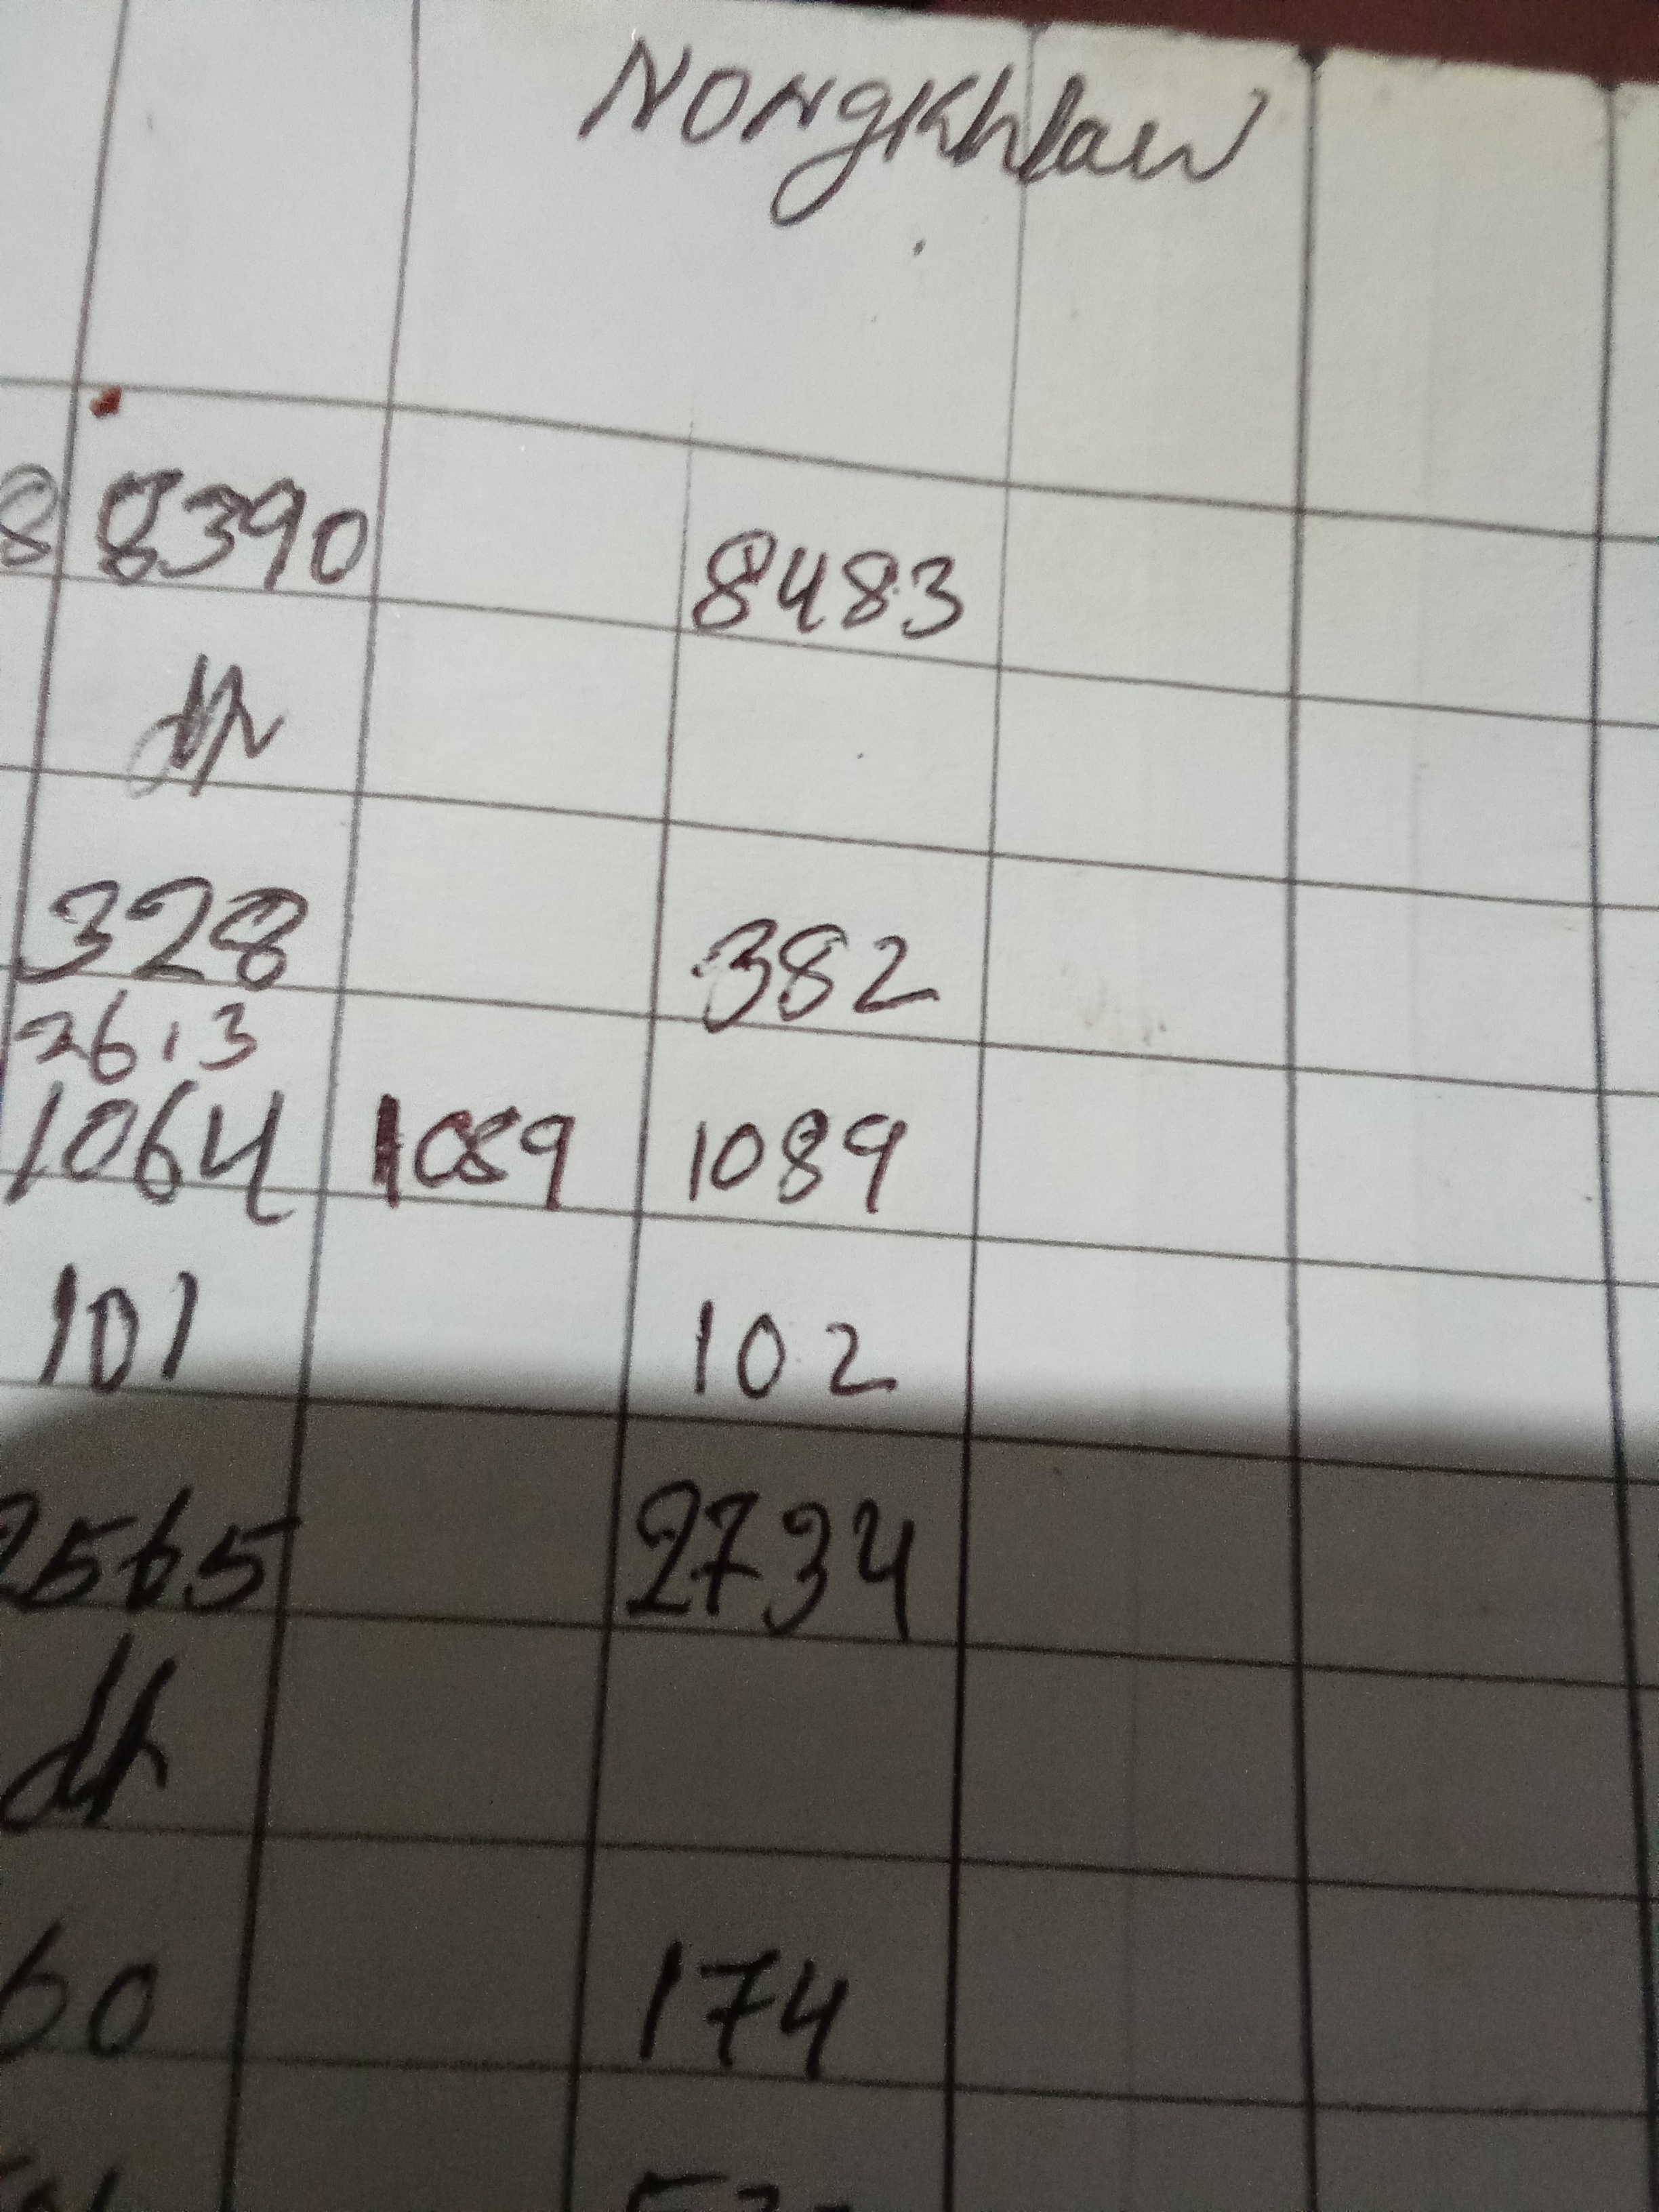 Nongkhlaw
8 8390 8483
328 382
26.3
1064 1089 1089
101 102
2565 2734
60 174